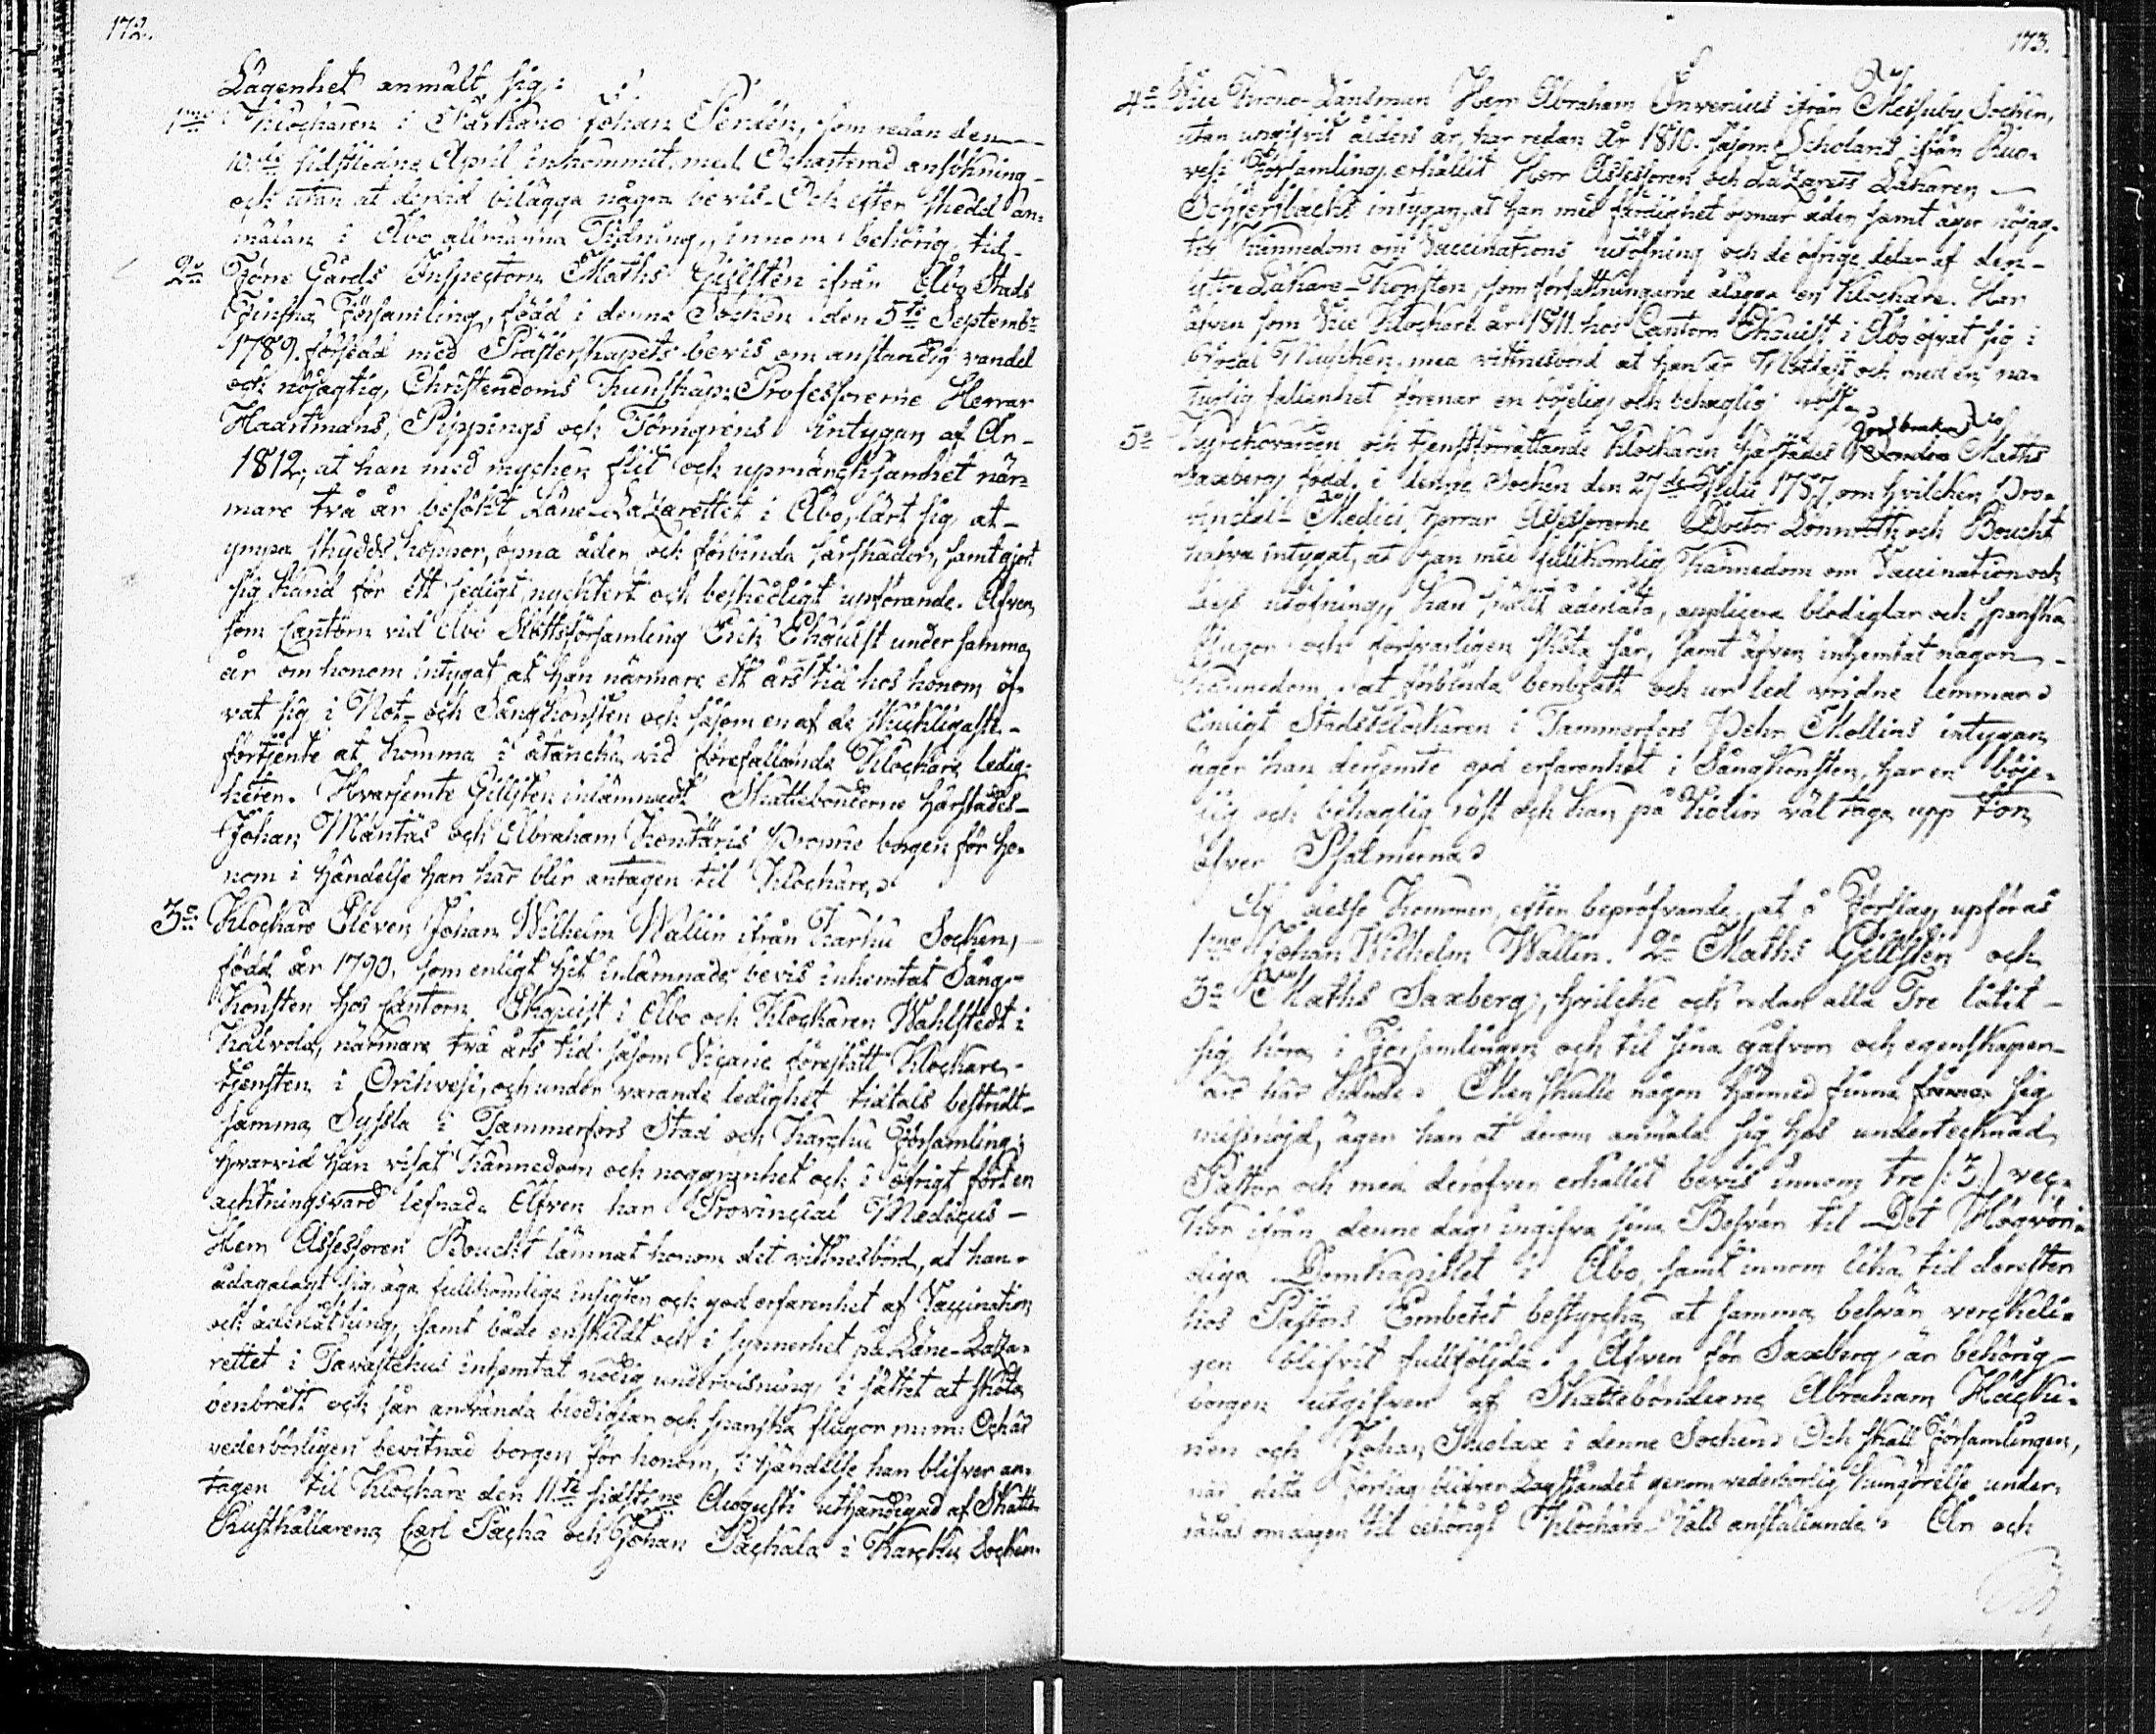 172.
Lägenhet anmält sig:
1mo Klockaren i Johan Perden, som redan den
10de sidstledne April inkommit med Ocharterad ansökning
och utan at dervid bilägga några bevis. Och efter skedd an-
mälan i Åbo allmänna Tidning, innom behörig tid.
2do Gårds Inspectorn Maths Gillsten ifrån Åbo Stads
Finska Församling, född i denne Socken den 5te Septembr
1789. försedd med Prästerskapets bevis om anständig vandel
och nöjagtig Christendoms kunskap: Professorerne Herrar
Haartmans, Pippings och Törngrens intygan af År
1812, at han med mycken flit och upmärcksamhet när-
mare två år besökt Läne-Lazarettet i Åbo, lärt sig at
ympa skydds koppor, öpna åder och förbinda sårskador, samt gjort
sig känd för ett sedigt, nycktert och beskedligt upförande. Äfven
som Cantorn vid Åbo Slottsförsamling Erik Ekquist under samma
år om honom intygat, at han närmare ett års tid hos honom öf-
vat sig i Not- och Sångkonsten och såsom en af de skickligaste
förtjente at komma i åtancka vid förefallande Klockare ledig-
heten. Hvarjemte Gillsten inlämnadt Skattebönderne härstädes
Johan Mäntäs och Abraham Kontäris borgen för ho-
nom i händelse han här blir antagen til Klockare.
3o Klockare Eleven Johan Wilhelm Wallin ifrån Karku Socken,
född år 1790. som enligt hit inlämnade bevis inhemtat Sång-
konsten hos Cantorn Ekquist i Åbo och Klockaren Wahlstedt i
Kalvola, närmare två års tid såsom Vicarie förestått Klockare-
tjensten i Orihvesi, och under varande ledighet tidtals bestridt
samma Syssla i Tammerfors Stad och Karcku Församling;
hvarvid han visat kännedom och noggranhet och i öfrigt fört en
acktningsvärd lefnad. Äfven har Provincial Medicus
Herr Assessoren Boucht lämnat honom det vittnesbörd, at han
ådagalagt sig äga fullkomlige insigter och god erfarenhet af Vaccination
och åderlåtning, samt både enskildt och i synnerhet på Läne-Laza-
rettet i Tavastehus inhemtat nödig undervisning, i sättet at sköta
benbrått och sår använda blodiglar och spanska flugor m:m: Och är
vederbörligen bevitnad borgen för honom, i händelse han blifver an-
tagen til Klockare den 11te sidstne Augusti uthändigad af Skatte
Rusthållarena Carl Pacha och Johan Packala i Karcku Socken.
173.
4o Vice Krono-Länsman Herr Abraham Invenius ifrån Messuby Socken,
utan ungifvit ålders år, har redan År 1810. såsom Scholant ifrån Ruo-
vesi Församling, erhållit Herr Assessoren och Lazarets Läkaren
intygan, at han med färdighet öpnar åder, samt äger nöjag-
tig kännedom om Vaccinations utöfning och de öfrige delar af den
yttre Läkare-Konsten, som författningarne ålägga en Klockare. Har
äfven som Vice Klockare år 1811. hos Cantorn Ekquist i Åbo öfvat sig i
Vocal Musiken med vittnesbörd at han är och med en na-
turlig fallenhet förenar en böjelig och behaglig röst.
Jordbrukaren
5o Kyrckovärden och tjenstförrättande Klockaren härstädes Maths
Saxberg född i denne Socken den 27de Julii 1757, om hvilcken Pro-
vincial Medici Herrar Assessorerne Doctor Lönnroth och Boucht
hafva intygat, at han med fullkomlig kännedom om Vaccination och
dess utöfning, kan åderlåta, applicera blodiglar och spanska
flugor och försvarligen sköta sår, samt äfven inhemtat någon
kännedom at förbinda benbrått och ur led vridne lemmar.
Enligt Stadsklockaren i Tammerfors Pehr Mollins intygan
äger han derjemte god erfarenhet i Sångkonsten, har en böje-
lig och behaglig röst och kan på Violin väl taga upp ton
öfver Psalmerna.
Af desse kommer, efter bepröfvande, at å Förslag upföras
1mo Johan Wilhelm Wallin. 2o Maths Gillsten och
3o Maths Saxberg, hvilcke och redan alla Tre låtit
sig höra i Församlingen och til sina gåfvor och egenskaper
äro här kände. Men skulle någon härmed finna sig
missnöjd, äger han at derom anmäla sig hos undertecknad
Pastor och med deröfver erhållit bevis innom tre /:3:/ vec-
kor ifrån denne dag ingifva sina Besvär til Det Högvör-
diga Domkapitlet i Åbo, samt innom lika tid derefter
hos Pastors Embetet bestyrcka, at samma besvär verckeli-
gen blifvit fullföljda. Äfven för Saxberg är behörig
borgen utgifven af Skattebönderne Abraham Häcki-
nen och Johan Skolax i denne Socken. Och skall Församlingen,
när detta Förslag blifver Lagståndet genom vederbörlig kungörelse under-
rättas om dagen til behörigt Klockare-Vals anställande. År och